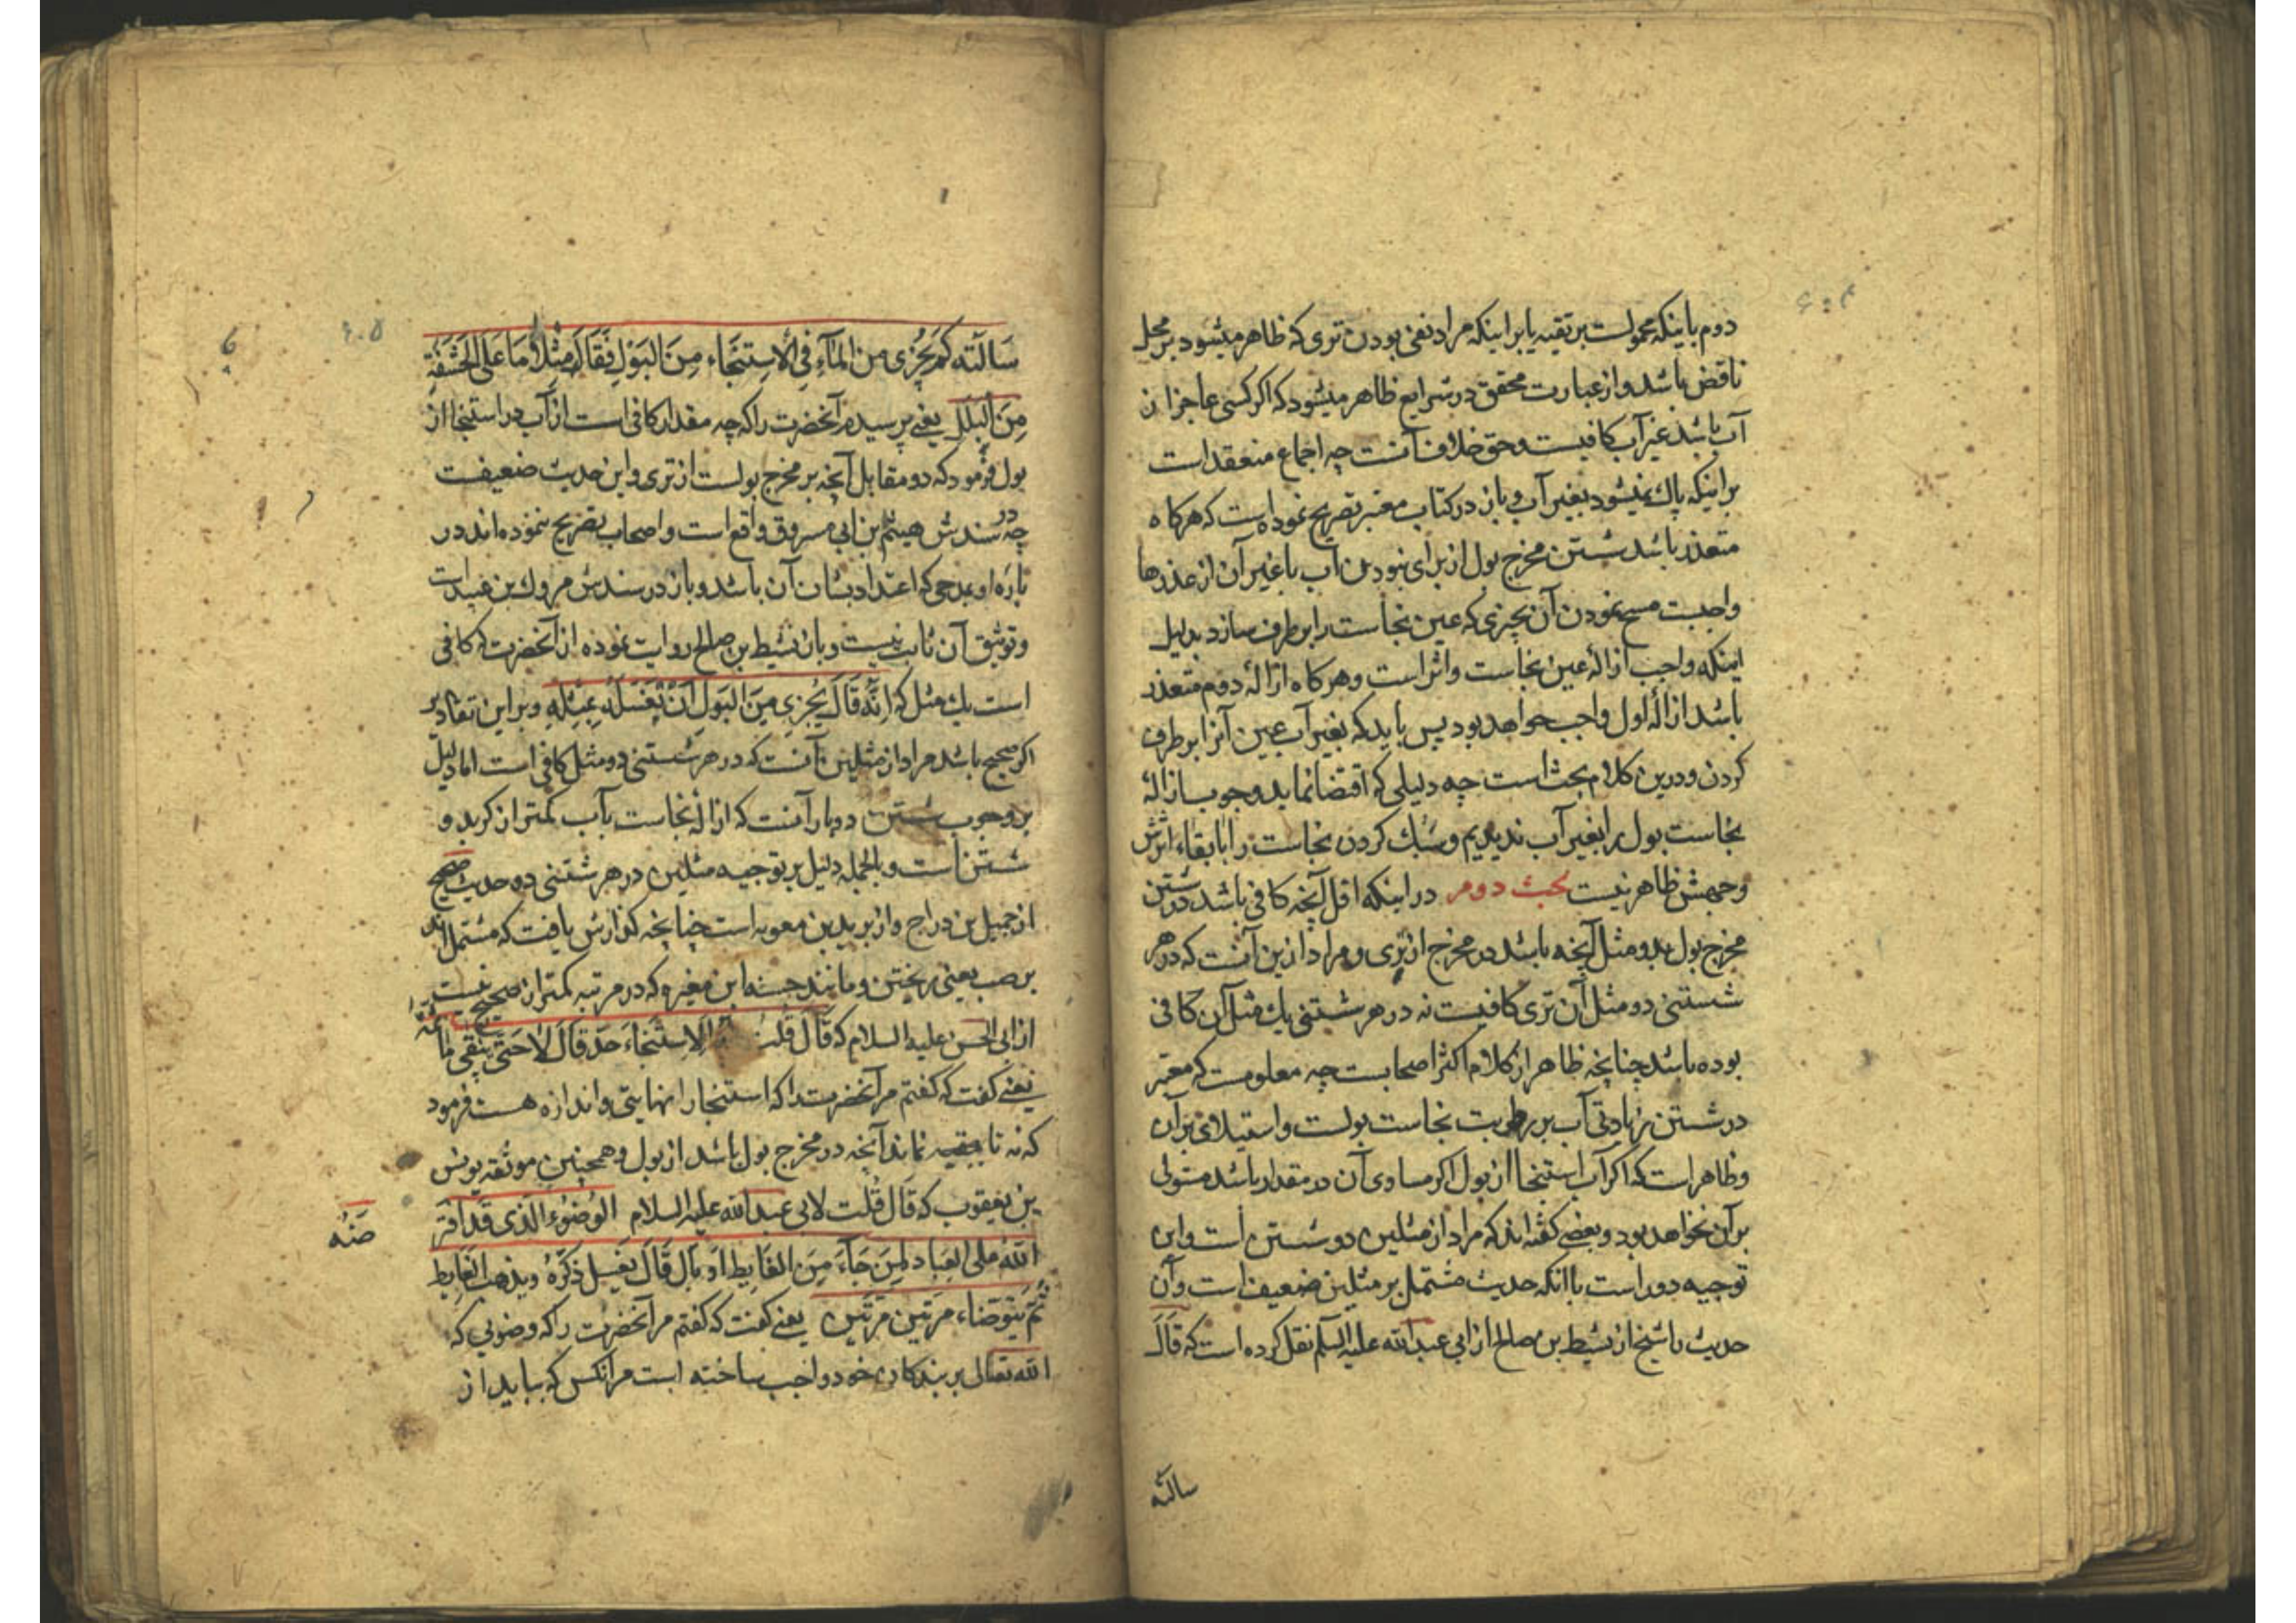 دوم باینکه محمولست بر تقیه یا بر اینکه مراد نفی بودن تری که ظاهر میشود بر محل
ناقض باشد و از عبارت محقق در شرایع ظاهر میشود که اکر کسی عاجز از
آب باشد غیر آب کافیست و حق خلاف آنست چه اجماع منعقد است
بر اینکه پاك نمیشود بغیر آب و باز در کتاب معتبر تصریح نموده است که هرکاه
متعذر باشد شستن مخرج بول از برای نبودن آب یا غیر آن از عذرها
واجبست مسح نمودن آن بچیزی که عین نجاست را بر طرف سازد بدلیل
اینکه واجب ازالۀ عین نجاست و اثر است و هرکاه ازالۀ دوم متعذر
باشد ازالۀ اول واجب خواهد بود پس باید که بغیر آب عین آنرا بر طرف
کردن و درین کلام بحث است چه دلیلی که اقتضا نماید وجوب ازالۀ
نجاست بول را بغیر آب ندیدیم و سبك کردن نجاست را با بقاء اثرش
وجهش ظاهر نیست بحث دوم در اینکه اقل آنچه کافی باشد در شستن
مخرج بول بدو مثل آنچه باشد در مخرج از تری و مراد ازین آنست که در هر
شستنی دو مثل آن تری کافیست نه در هر شستنی یك مثل آن کافی
بوده باشد چنانچه ظاهر از کلام اکثر اصحابست چه معلومست که معتبر
در شستن زیادتی آب بر رطوبت نجاست بولست و استیلای بر آن
و ظاهر است که اکر آب استنجا از بول اکر مساوی آن در مقدار باشد مستولی
بر آن نخواهد بود و بعضی کفته اند که مراد از مثلین دو شستن است و این
توجیه دور است با آنکه حدیث مشتمل بر مثلین ضعیف است و آن
حدیث را شیخ از نشیط بن صالح از ابی عبد الله علیه السلم نقل کرده است که قَالَ
سالته
سَالَته کَم یُجزی مِنَ المَآءِ فِی الاِستِنجَاء مِنَ البَولِ فَقَالَ مِثلاٰ مَا عَلَی الحَشَفَةِ
مِنَ البَلَلِ یعنی پرسیدم آنحضرت را که چه مقدار کافی است از آب در استنجا از
بول فرمود که دو مقابل آنچه بر مخرج بولست از تری و این حدیث ضعیفست
چه در سندش هیثم بن ابی مسروق واقع است و اصحاب تصریح ننموده اند در
باره او بمدحی که اعتداد بشان آن باشد و باز در سندش مروك بن عبید است
و توثیق آن ثابت نیست و باز نشیط بن صالح روایت نموده از آنحضرت که کافی
است یك مثل که اِنَّهُ قَالَ یُجزِی مِنَ البَولِ اَن یَغسِلَهُ بِمِثلِهِ و بر این تقادیر
اکر صحیح باشد مراد از مثلین آنست که در هر شستنی دو مثل کافی است اما دلیل
بر وجوب شستن دوبار آنست که ازالۀ نجاست بآب کمتر از کرید و
شستن است و بالجمله دلیل بر توجیه مثلین در هر شستنی دو حدیث صحیح
از جمیل بن دراج و از برید بن معویه است چنانچه کذارش یافت که مشتمل اند
بر صب یعنی ریختن و مانند حسنه ابن مغیره که در مرتبه کمتر از صحیح نیست
از ابی الحسن علیه السلام که قَالَ قُلتُ الاِستِنجَاءَ حَدّ قَالَ لاٰ حَتّٰی یَنقٰی مٰا ثَمَّهُ
یعنی کفت که کفتم مر آنحضرت را که استنجا را نهایتی و اندازه هست فرمود
که نه تا بقیه نماند آنچه در مخرج بول باشد از بول و همچنین موثقه یونس
بن یعقوب که قَالَ قُلت لابی عبد الله علیه السلام الوُضُوء الَّذی قَد افتَر
ضَهُ
اللهُ علی العِبَاد لِمَن جَآءَ مِنَ الغَایِط اَو بَالَ قَالَ یَغسِل ذَکَرَهُ وَیَذهَب الغَایِط
ثُمَّ یَتَوَضَّاء مَرتَین مَرتَین یعنی کفت که کفتم مر آنحضرت را که وضویی که
الله تعالی بر بندکان خود واجب ساخته است مر آنکس که بیاید از